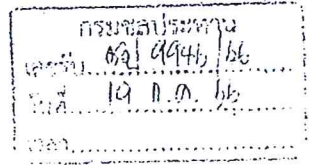 กรมชลประทาน
เลขรับ สธ 9946/66
วันที่ 19 ก.ค. 66
เวลา